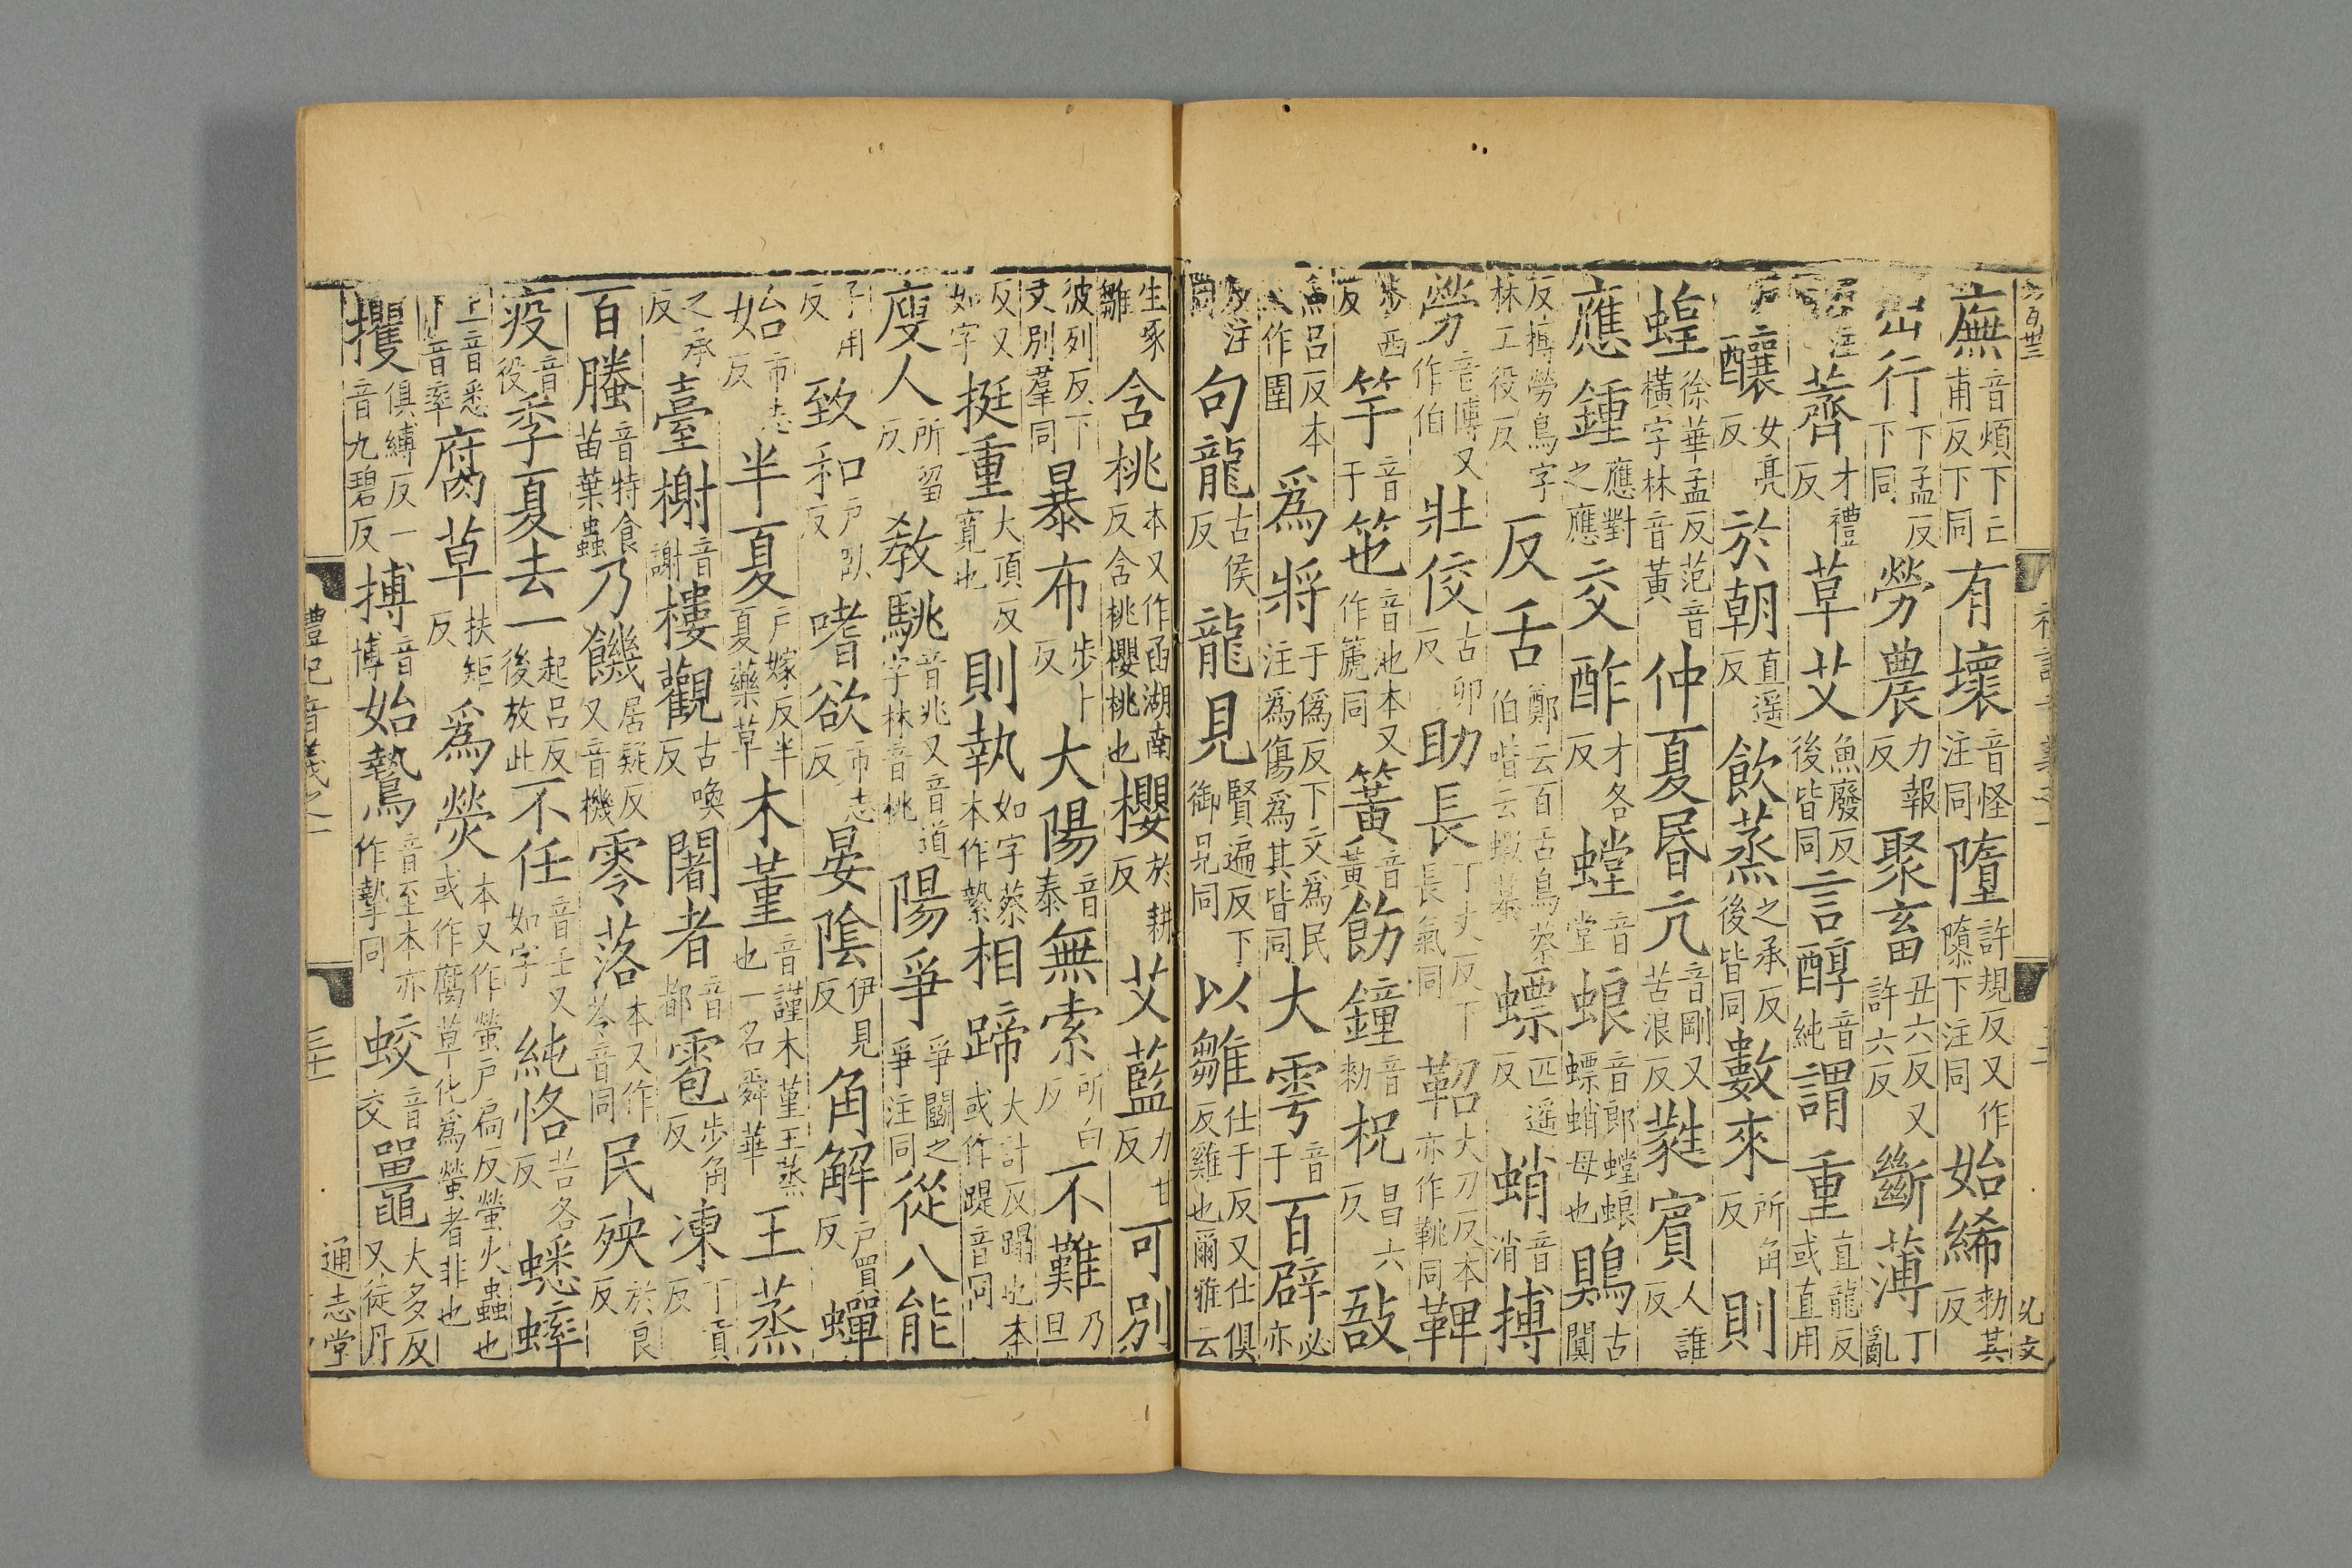 廡音煩下亡甫反下同有壞音怪注同隳許規反又作隳下注同始絺勑其反
出行下孟反下同勞農力報反聚畜丑六反又許六反斷薄丁亂
薺才禮反草艾魚廢反後皆同言醇音純謂重直龍反或直用
釀女亮反於朝直遥反飲蒸之承反後皆同數來所角反則
蝗徐華孟反范音橫字林音黃仲夏昬亢音剛又苦浪反蕤賓人誰反
應鍾應對之應交酢才各反螳音堂蜋音郎螳蜋螵蛸母也鶪古闃
反搏勞鳥字林工役反反舌鄭云百舌鳥蔡伯喈云蝦蟇螵匹遥反蛸音消搏
勞音博又作伯壯佼古卯反助長丁丈反下長氣同鞀大刀反本亦作鞉同鞞
步西反竽音于笹音池本又作篪同簧音黃飭鐘音勑柷昌六反敔
魚呂反本又作圉爲將于僞反下文爲民注爲傷爲其皆同大雩音于百辟必亦
反注同句龍古侯反龍見賢遍反下御見同以雛仕于反又仕俱反雞也爾雅云
生噣雛含桃本又作函湖南反含桃櫻桃也櫻於耕反艾藍力甘反可別
彼列反下文別羣同暴布步卜反大陽音泰無索所白反不難乃旦
反又如字挺重大頂反寬也則執如字蔡本作縶相蹄大計反蹋也本或作踶音同
廋人所留反敎駣音兆又音道字林音桃陽爭爭鬭之爭注同從八能
子用反致和戶臥反嗜欲市志反晏陰伊見反角解戶買反蟬
始市志反半夏戶嫁反半夏藥草木堇音謹木堇王蒸也一名舜華王蒸
之承反臺榭音謝樓觀古喚反闍者音都雹步角反凍丁貢反
百螣音特食苗葉蟲乃饑居疑反又音機零落本又作苓音同民殃於良反
疫音役季夏去一起呂反後放此不任音壬又如字純恪苦各反蟋蟀
上音悉下音率腐草扶矩反爲熒本又作螢戶扃反螢火蟲也或作腐草化爲螢者非也
攫俱縛反一音九碧反搏音博始鷙音至本亦作摯同蛟音交鼉大多反又徒丹
禮記音義之一
三十一
通志堂